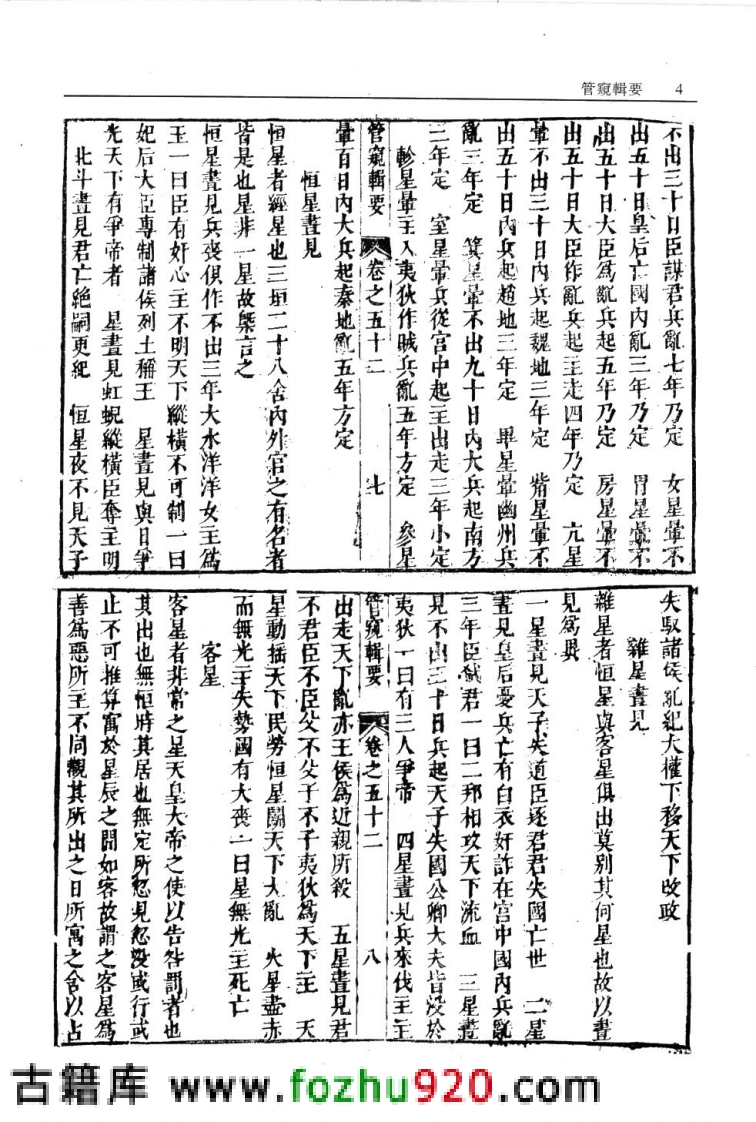 管窺輯要 4
不出三十日臣謀君兵亂七年乃定 女星暈不
出五十日皇后亡國內亂三年乃定 胃星暈不
出五十日大臣為亂兵起五年乃定 房星暈不
出五十日大臣作亂兵起主走四年乃定 亢星
暈不出三十日內兵起魏地三年定 觜星暈不
出五十日內兵起趙地三年定 畢星暈幽州兵
亂三年定 箕星暈不出九十日內大兵起南方
三年定 室星暈兵從宮中起主出走三年小定
軫星暈主入夷狄作賊兵亂五年方定 參星
管窺輯要 卷之五十二 七
暈百日內大兵起秦地亂五年方定
恒星晝見
恒星者經星也三垣二十八舍內外官之有名者
皆是也星非一星故槩言之
恒星晝見兵喪俱作不出三年大水洋洋女主為
王一曰臣有奸心主不明天下縱橫不可制一曰
妃后大臣專制諸侯列土稱王 星晝見與日爭
光天下有爭帝者 星晝見虹蜺縱橫臣奪主明
北斗晝見君亡絶嗣更紀 恒星夜不見天子
失馭諸侯亂紀大權下移天下改政
雜星晝見
雜星者恒星與客星俱出莫别其何星也故以晝
見為異
一星晝見天子失道臣逐君君失國亡世 二星
晝見皇后憂兵亡有白衣奸詐在宫中國內兵亂
三年臣弑君一曰二邦相攻天下流血 三星晝
見不出三十日兵起天子失國公卿大夫皆没於
夷狄一曰有三人爭帝 四星晝見兵來伐主主
管窺輯要 卷之五十二 八
出走天下亂亦王侯為近親所殺 五星晝見君
不君臣不臣父不父子不子夷狄為天下主 天
星動揺天下民勞恒星鬬天下大亂 火星盡赤
而無光主失勢國有大喪一曰星無光主死亡
客星
客星者非常之星天皇大帝之使以告咎罰者也
其出也無恒時其居也無定所忽見忽没或行或
止不可推算寓於星辰之間如客故謂之客星為
善為惡所主不同觀其所出之日所寓之舍以占
古籍库 www.fozhu920.com